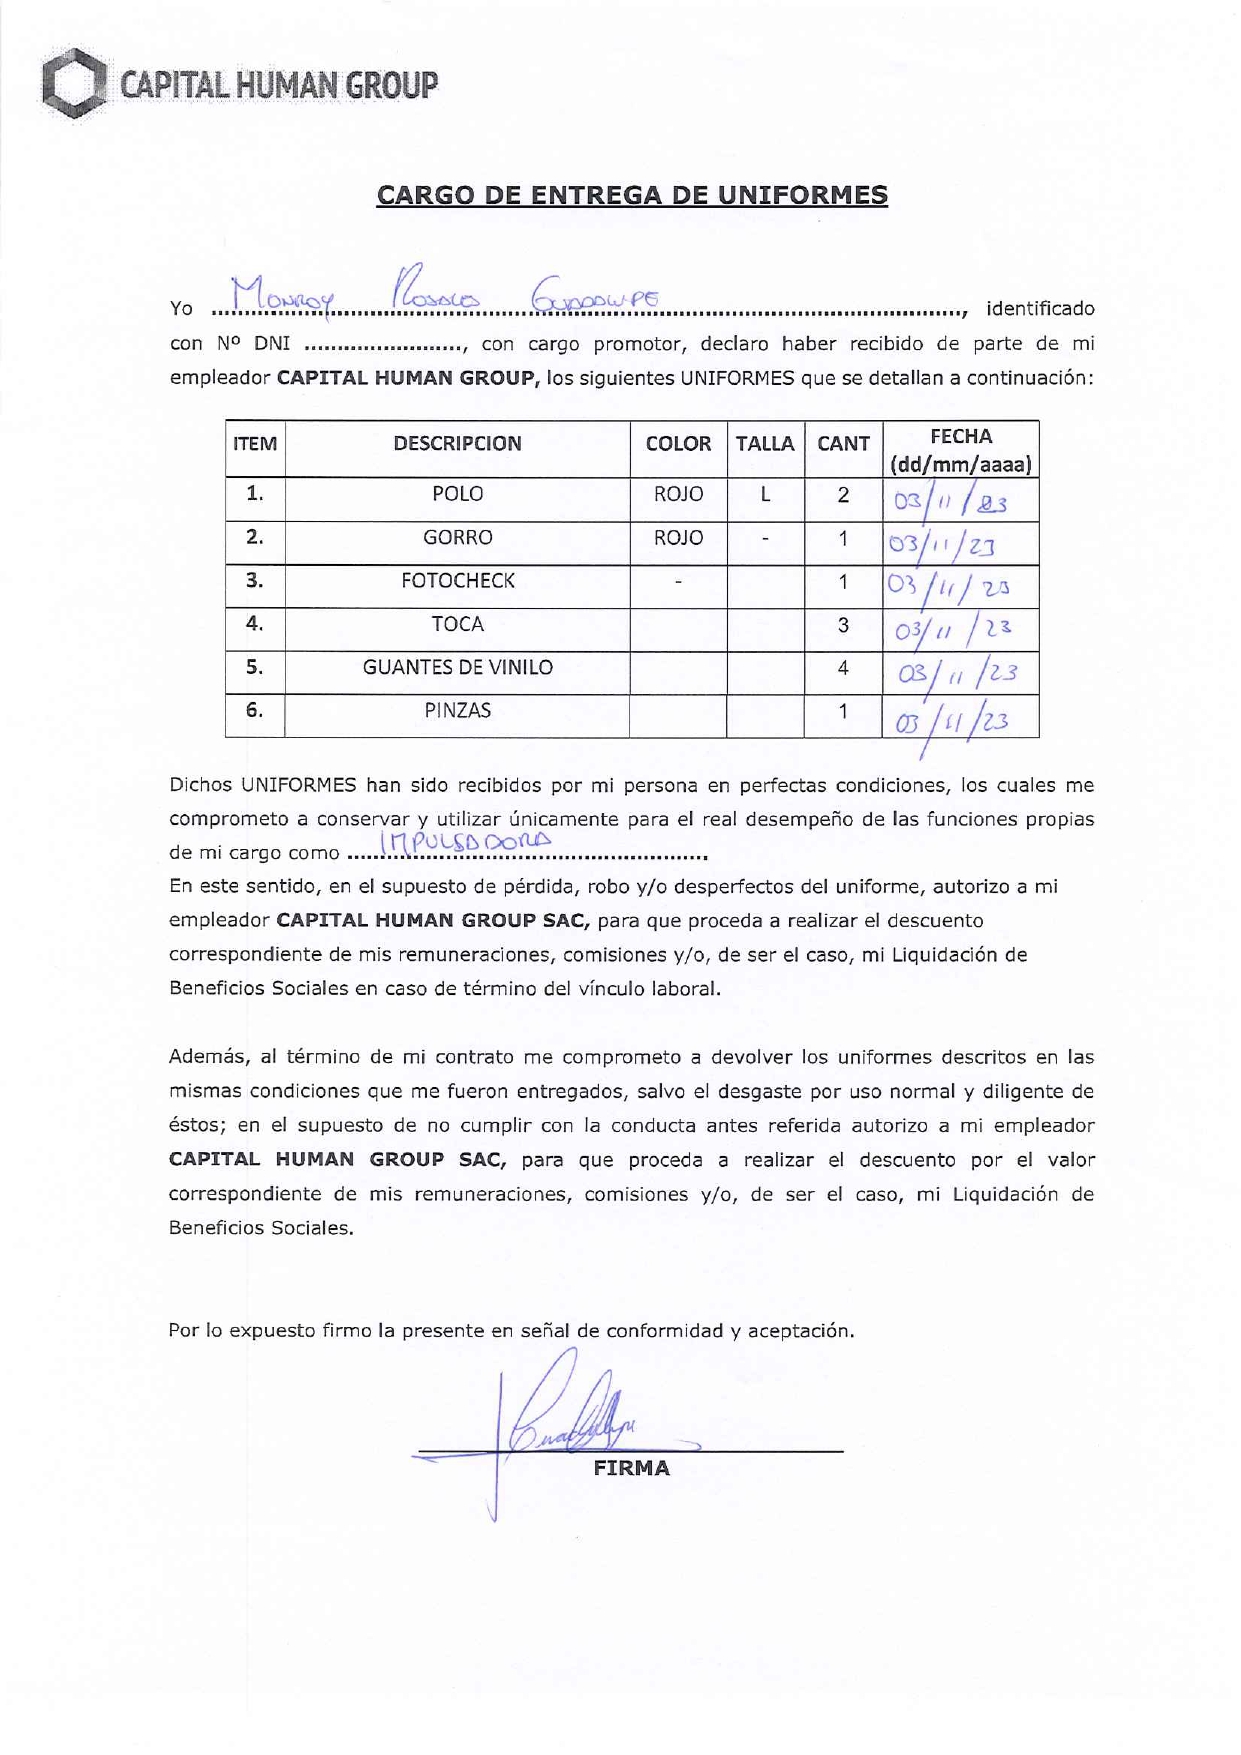 CAPITAL HUMAN GROUP
CARGO DE ENTREGA DE UNIFORMES
Yo Monroy Rosales Guadalupe, identificado
con Nº DNI ........................, con cargo promotor, declaro haber recibido de parte de mi
empleador CAPITAL HUMAN GROUP, los siguientes UNIFORMES que se detallan a continuación:
ITEM DESCRIPCION COLOR TALLA CANT FECHA (dd/mm/aaaa)
1. POLO ROJO L 2 03/11/23
2. GORRO ROJO - 1 03/11/23
3. FOTOCHECK - 1 03/11/23
4. TOCA 3 03/11/23
5. GUANTES DE VINILO 4 03/11/23
6. PINZAS 1 03/11/23
Dichos UNIFORMES han sido recibidos por mi persona en perfectas condiciones, los cuales me
comprometo a conservar y utilizar únicamente para el real desempeño de las funciones propias
de mi cargo como IMPULSADORA
En este sentido, en el supuesto de pérdida, robo y/o desperfectos del uniforme, autorizo a mi
empleador CAPITAL HUMAN GROUP SAC, para que proceda a realizar el descuento
correspondiente de mis remuneraciones, comisiones y/o, de ser el caso, mi Liquidación de
Beneficios Sociales en caso de término del vínculo laboral.
Además, al término de mi contrato me comprometo a devolver los uniformes descritos en las
mismas condiciones que me fueron entregados, salvo el desgaste por uso normal y diligente de
éstos; en el supuesto de no cumplir con la conducta antes referida autorizo a mi empleador
CAPITAL HUMAN GROUP SAC, para que proceda a realizar el descuento por el valor
correspondiente de mis remuneraciones, comisiones y/o, de ser el caso, mi Liquidación de
Beneficios Sociales.
Por lo expuesto firmo la presente en señal de conformidad y aceptación.
FIRMA